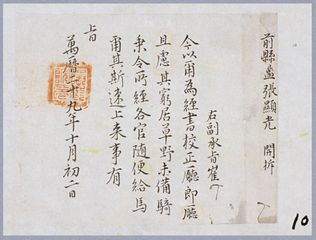 前縣監張顯光 開拆
右副承旨崔
今以爾為經書校正廳郎廳
且慮其窮居草野未備騎
乘令所經各官隨便給馬
爾其斯速上来事有
旨
萬曆二十九年十月初二日
10